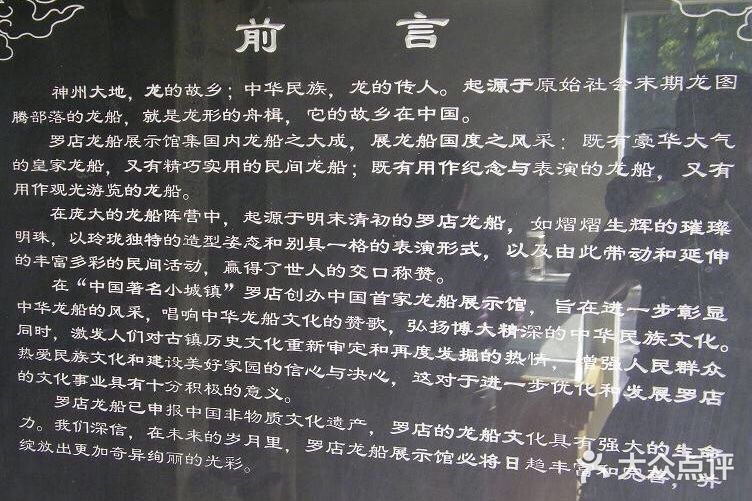 前言
神州大地，龙的故乡；中华民族，龙的传人。起源于原始社会末期龙图
腾部落的龙船，就是龙形的舟楫，它的故乡在中国。
罗店龙船展示馆集国内龙船之大成，展龙船国度之风采：既有豪华大气
的皇家龙船，又有精巧实用的民间龙船；既有用作纪念与表演的龙船，又有
用作观光游览的龙船。
在庞大的龙船阵营中，起源于明末清初的罗店龙船，如熠熠生辉的璀璨
明珠，以玲珑独特的造型姿态和别具一格的表演形式，以及由此带动和延伸
的丰富多彩的民间活动，赢得了世人的交口称赞。
在“中国著名小城镇”罗店创办中国首家龙船展示馆，旨在进一步彰显
中华龙船的风采，唱响中华龙船文化的赞歌，弘扬博大精深的中华民族文化。
同时，激发人们对古镇历史文化重新审定和再度发掘的热情，增强人民群众
热爱民族文化和建设美好家园的信心与决心，这对于进一步优化和发展罗店
的文化事业具有十分积极的意义。
罗店龙船已申报中国非物质文化遗产，罗店的龙船文化具有强大的生命
力。我们深信，在未来的岁月里，罗店龙船展示馆必将日趋丰富和完善，
绽放出更加奇异绚丽的光彩。
大众点评